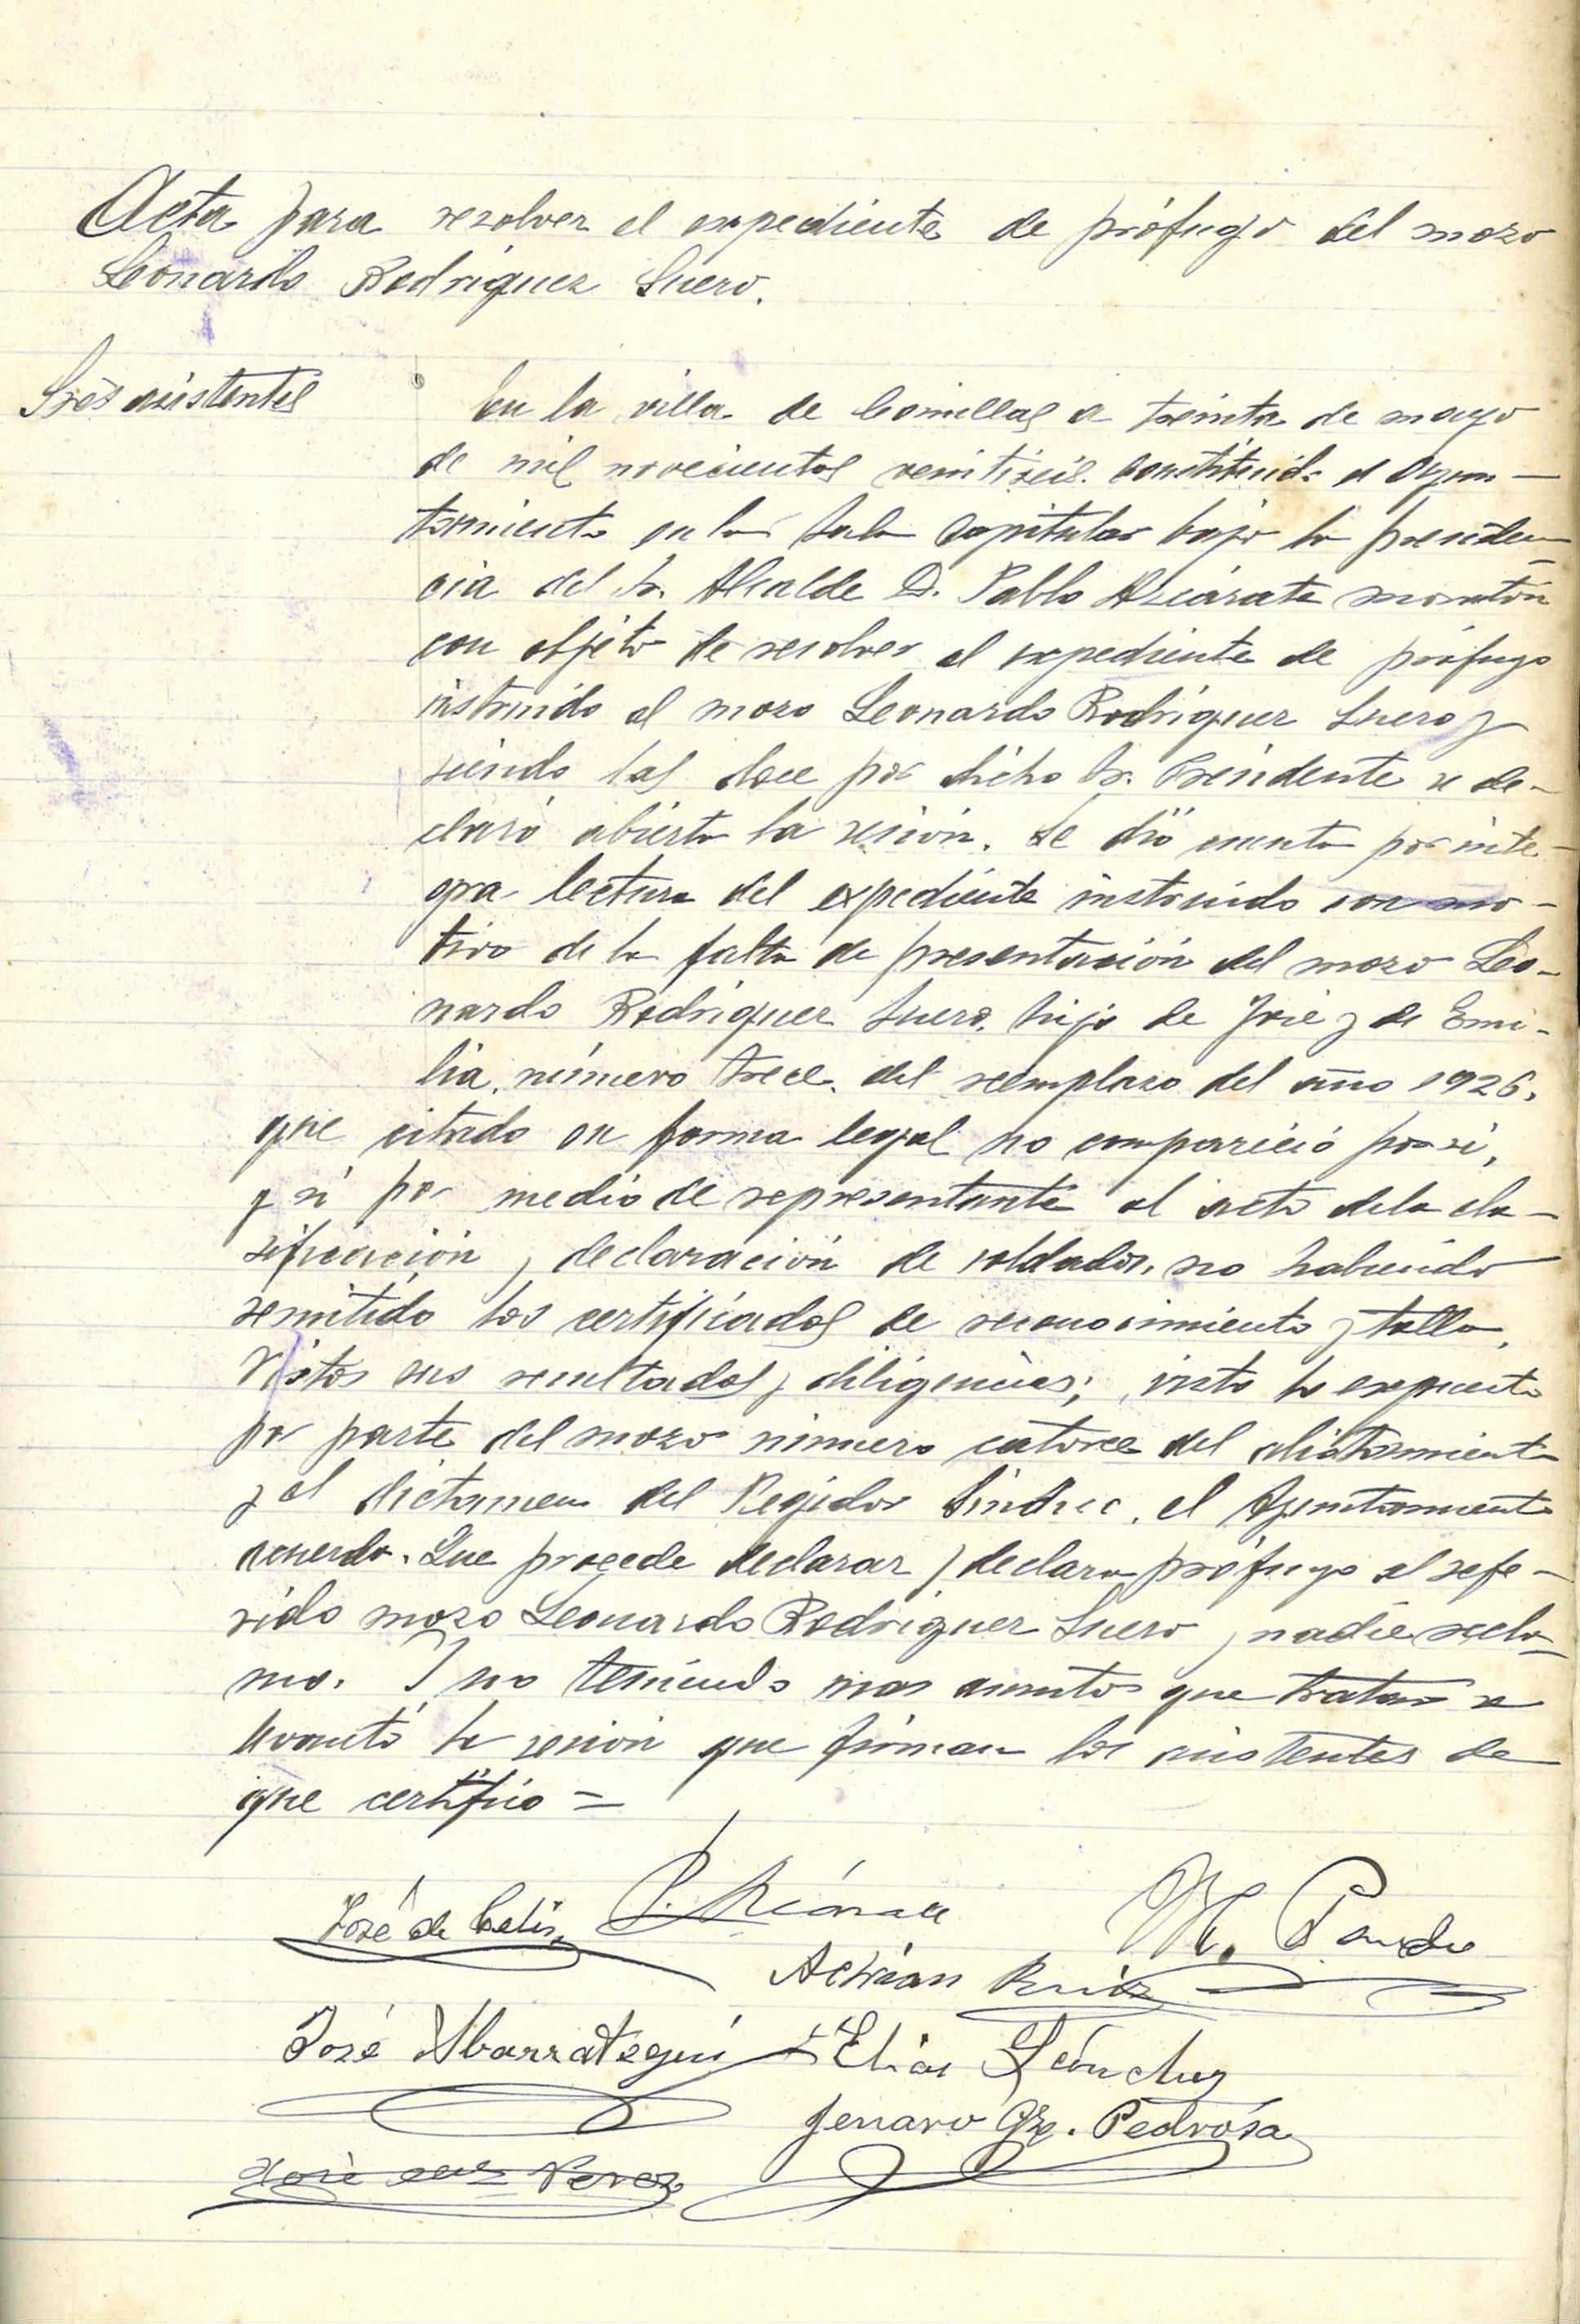 Acta para resolver el expediente de prófugo del mozo
Leonardo Rodriguez Suero.
Sres asistentes
En la villa de Comillas a treinta de mayo
de mil novecientos veintiseis. Constituido el Ayun-
tamiento en la Sala Capitular bajo la presiden-
cia del Sr. Alcalde D. Pablo Azcárate
con objeto de resolver el expediente de prófugo
instruido al mozo Leonardo Rodriguez Suero y
siendo las doce por dicho Sr. Presidente se de-
claró abierta la sesión. Se dió cuenta por inte-
gra lectura del expediente instruido con mo-
tivo de la falta de presentación del mozo Leo-
nardo Rodriguez Suero, hijo de José y de Emi-
lia, número trece, del reemplazo del año 1926,
que citado en forma legal no compareció por si,
y ni por medio de representante al acto de la cla-
sificación y declaración de soldados, no habiendo
remitido los certificados de reconocimiento y talla,
Vistos sus resultados y diligencias; visto lo expuesto
por parte del mozo número catorce del alistamiento
y el dictamen del Regidor Sindico, el Ayuntamiento
acuerda. Que procede declarar y declara prófugo al refe-
rido mozo Leonardo Rodriguez Suero y nadie recla-
mo. Y no teniendo mas asuntos que tratar se
levantó la sesion que firman los asistentes de
que certifico =
José de Celis P. Azcárate M. Pando
Adrián Ruiz
José Ybarrategui Elias Sánchez
Jenaro Gz. Pedrosa
José Perez